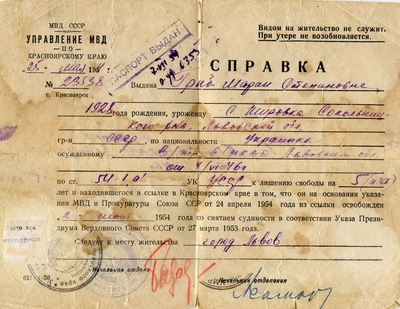 МВД СССР
УПРАВЛЕНИЕ МВД
—ПО—
КРАСНОЯРСКОМУ КРАЮ
Видом на жительство не служит.
При утере не возобновляется.
25 мая 1954
№ 22538
г. Красноярск
ПАСПОРТ ВЫДАН
СПРАВКА
Выдана Гриб Марии Степановне
1928 года рождения, уроженцу с. Жировка Сокольниц-
кого р-на, Львовской обл.
гр-н СССР, по национальности Украинка
осужденному Львовской обл.
от 4/VI-46г
по ст. 54-1а УК УССР к лишению свободы на 5
лет и находившегося в ссылке в Красноярском крае в том, что он на основании указа-
ния МВД и Прокуратуры Союза ССР от 24 апреля 1954 года из ссылки освобожден
2 1954 года со снятием судимости в соответствии Указа Прези-
диума Верховного Совета СССР от 27 марта 1953 года.
Следует к месту жительства город Львов
Начальник отдела
Начальник отделения